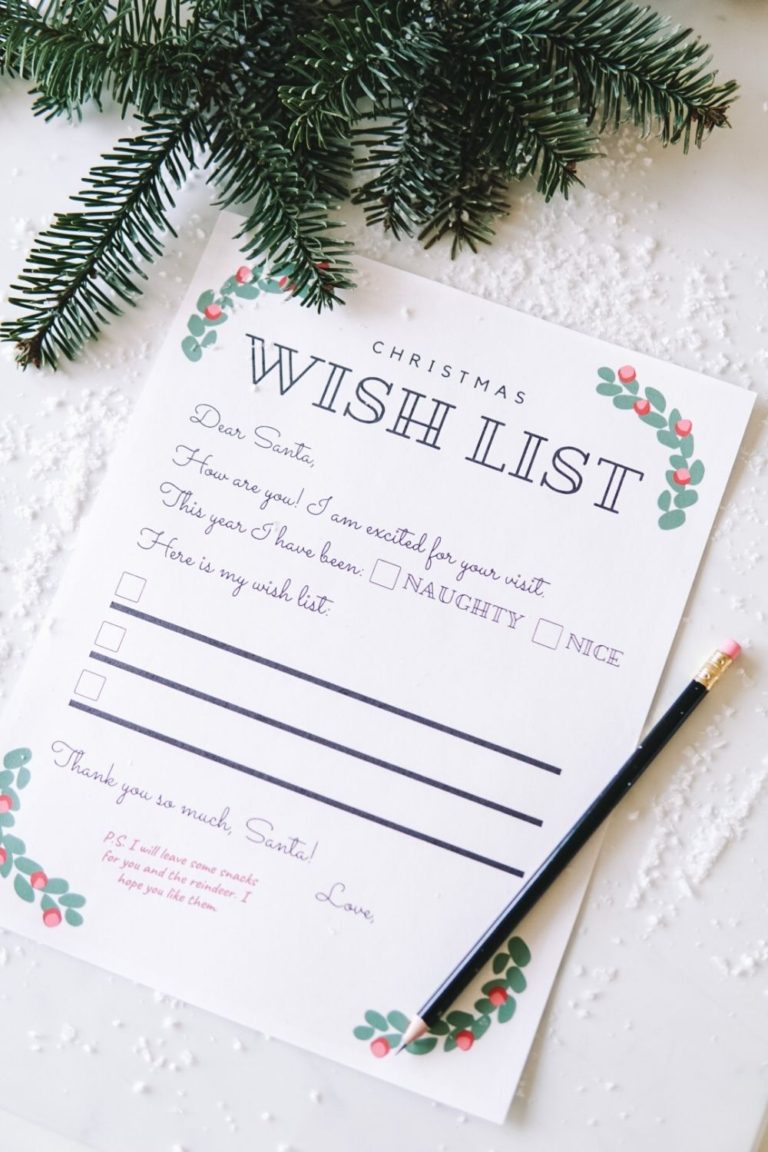 CHRISTMAS
WISH LIST
Dear Santa,
How are you! I am excited for your visit.
This year I have been: NAUGHTY NICE
Here is my wish list:
Thank you so much, Santa!
P.S. I will leave some snacks
for you and the reindeer. I
hope you like them
Love,